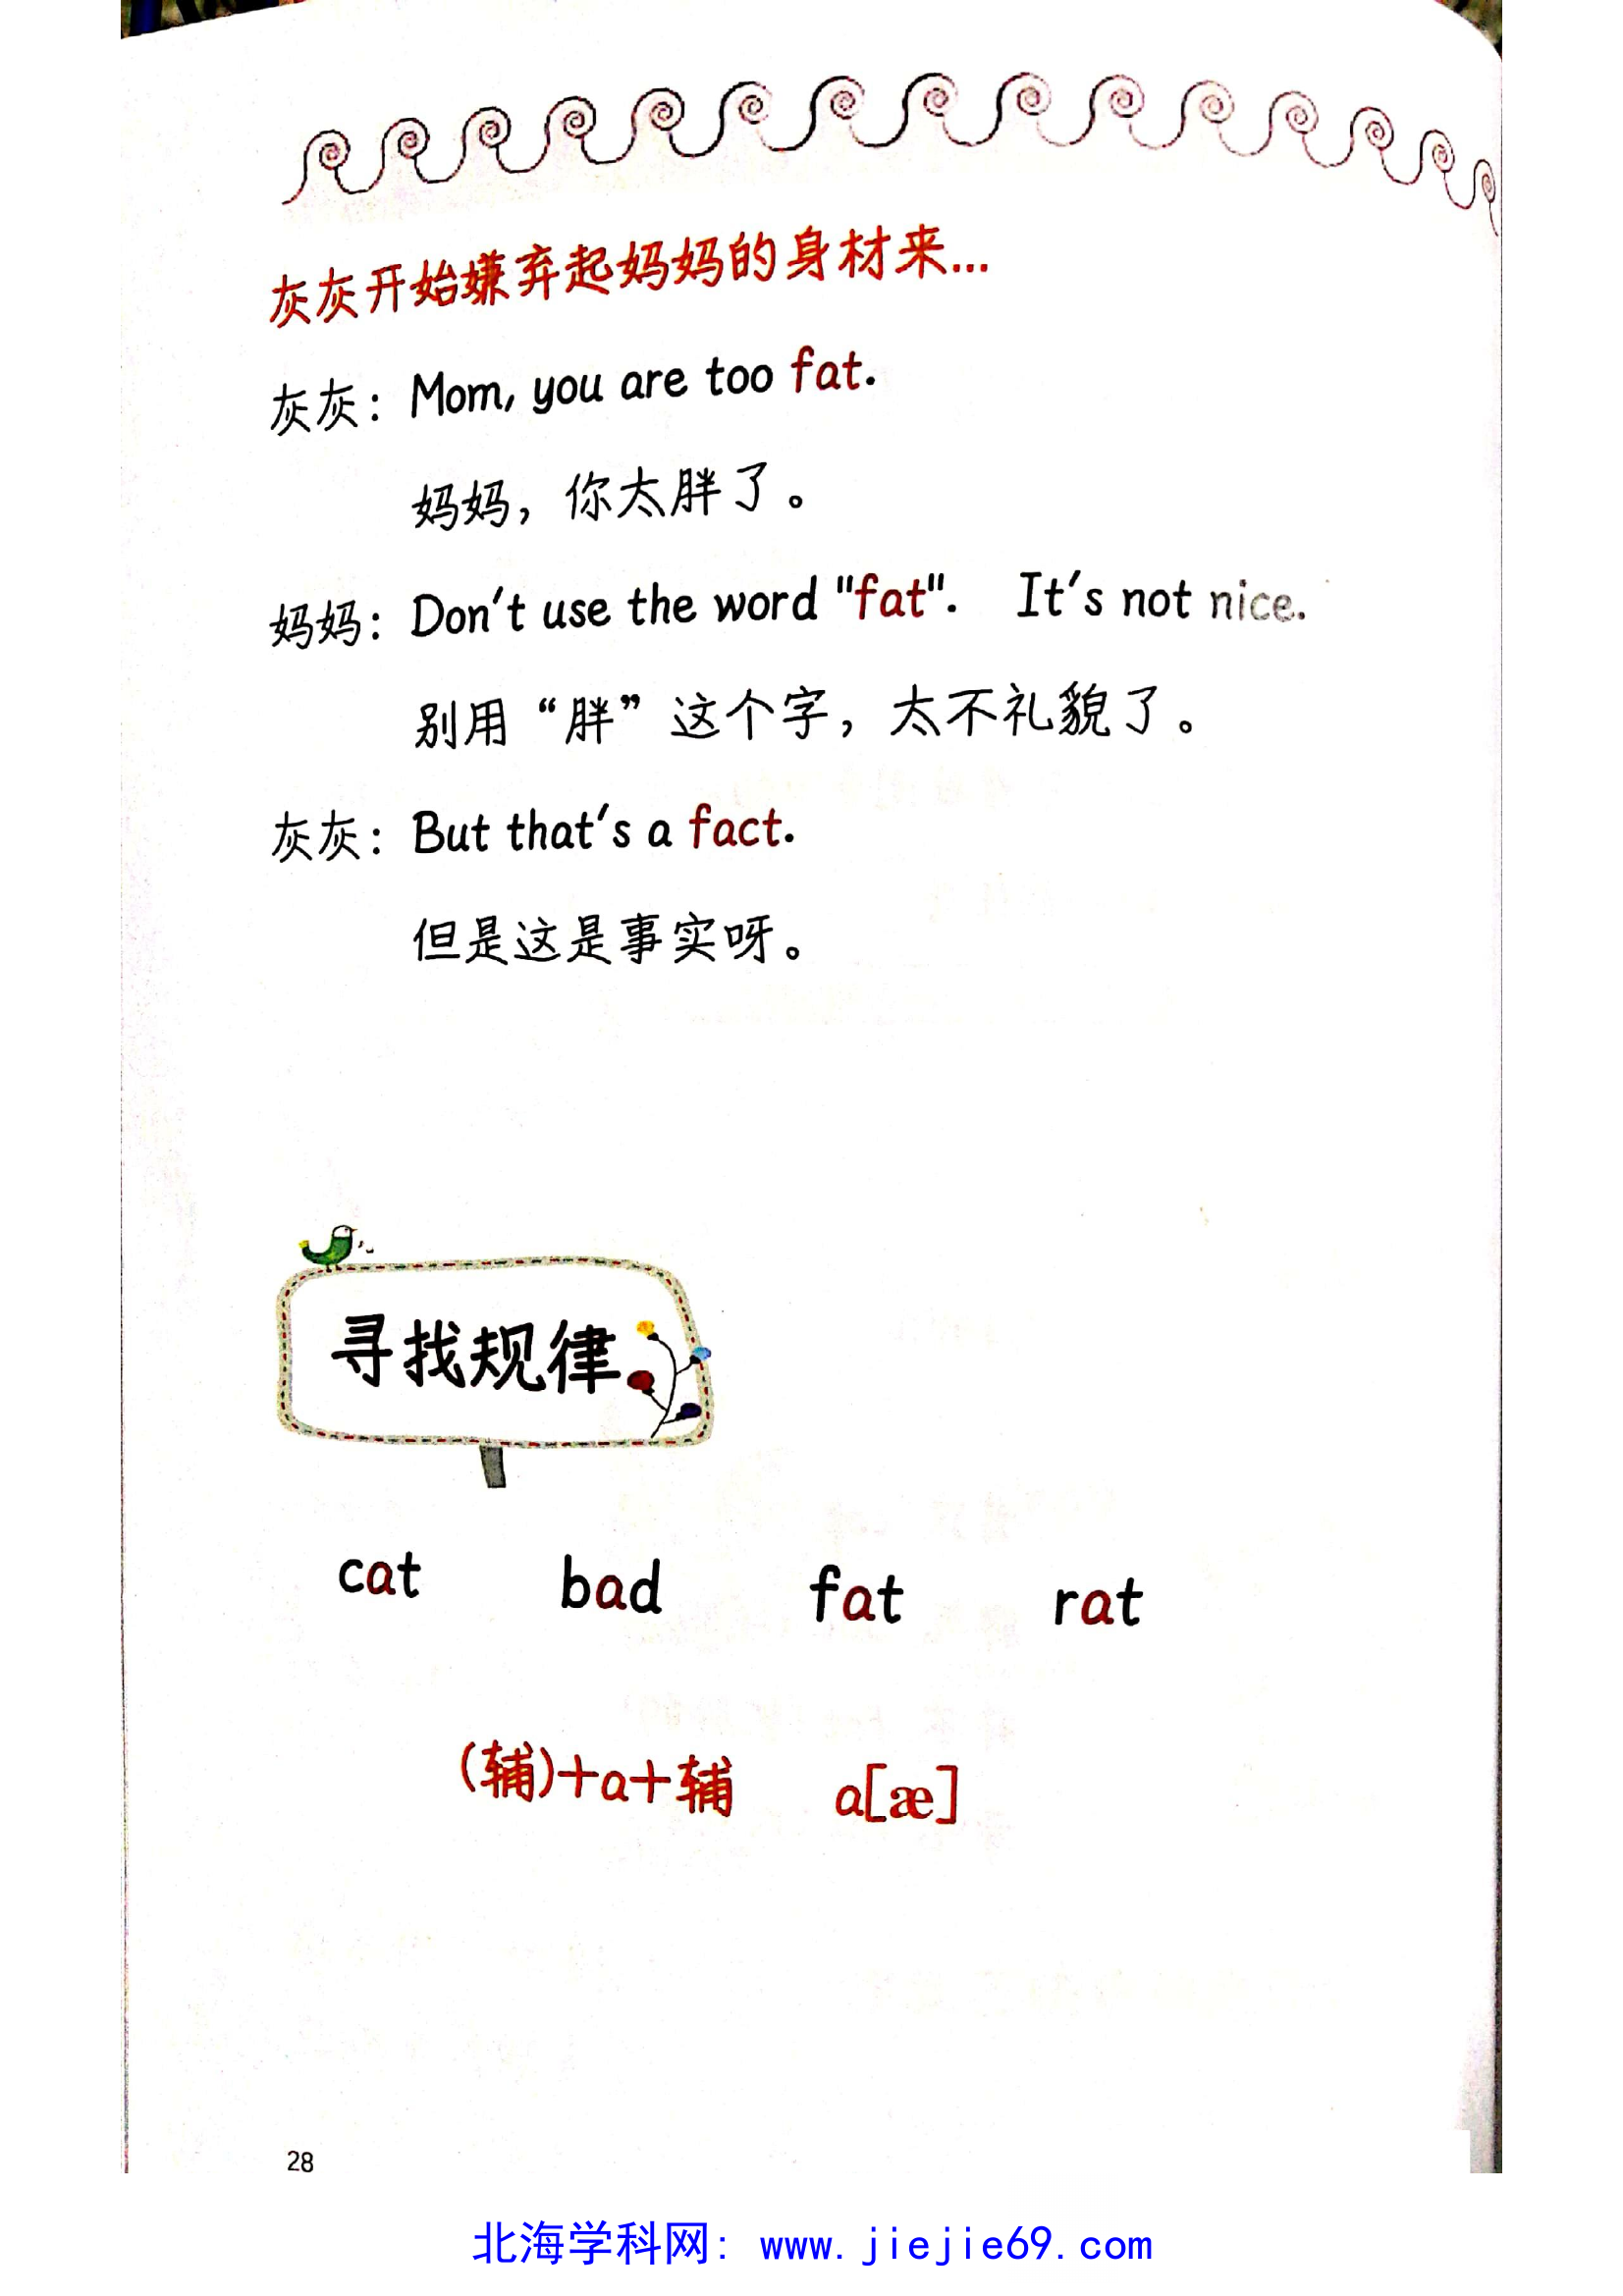 灰灰开始嫌弃起妈妈的身材来...
灰灰：Mom, you are too fat.
妈妈，你太胖了。
妈妈：Don't use the word "fat". It's not nice.
别用“胖”这个字，太不礼貌了。
灰灰：But that's a fact.
但是这是事实呀。
寻找规律
cat bad fat rat
(辅)+a+辅 a[æ]
28
北海学科网：www.jiejie69.com